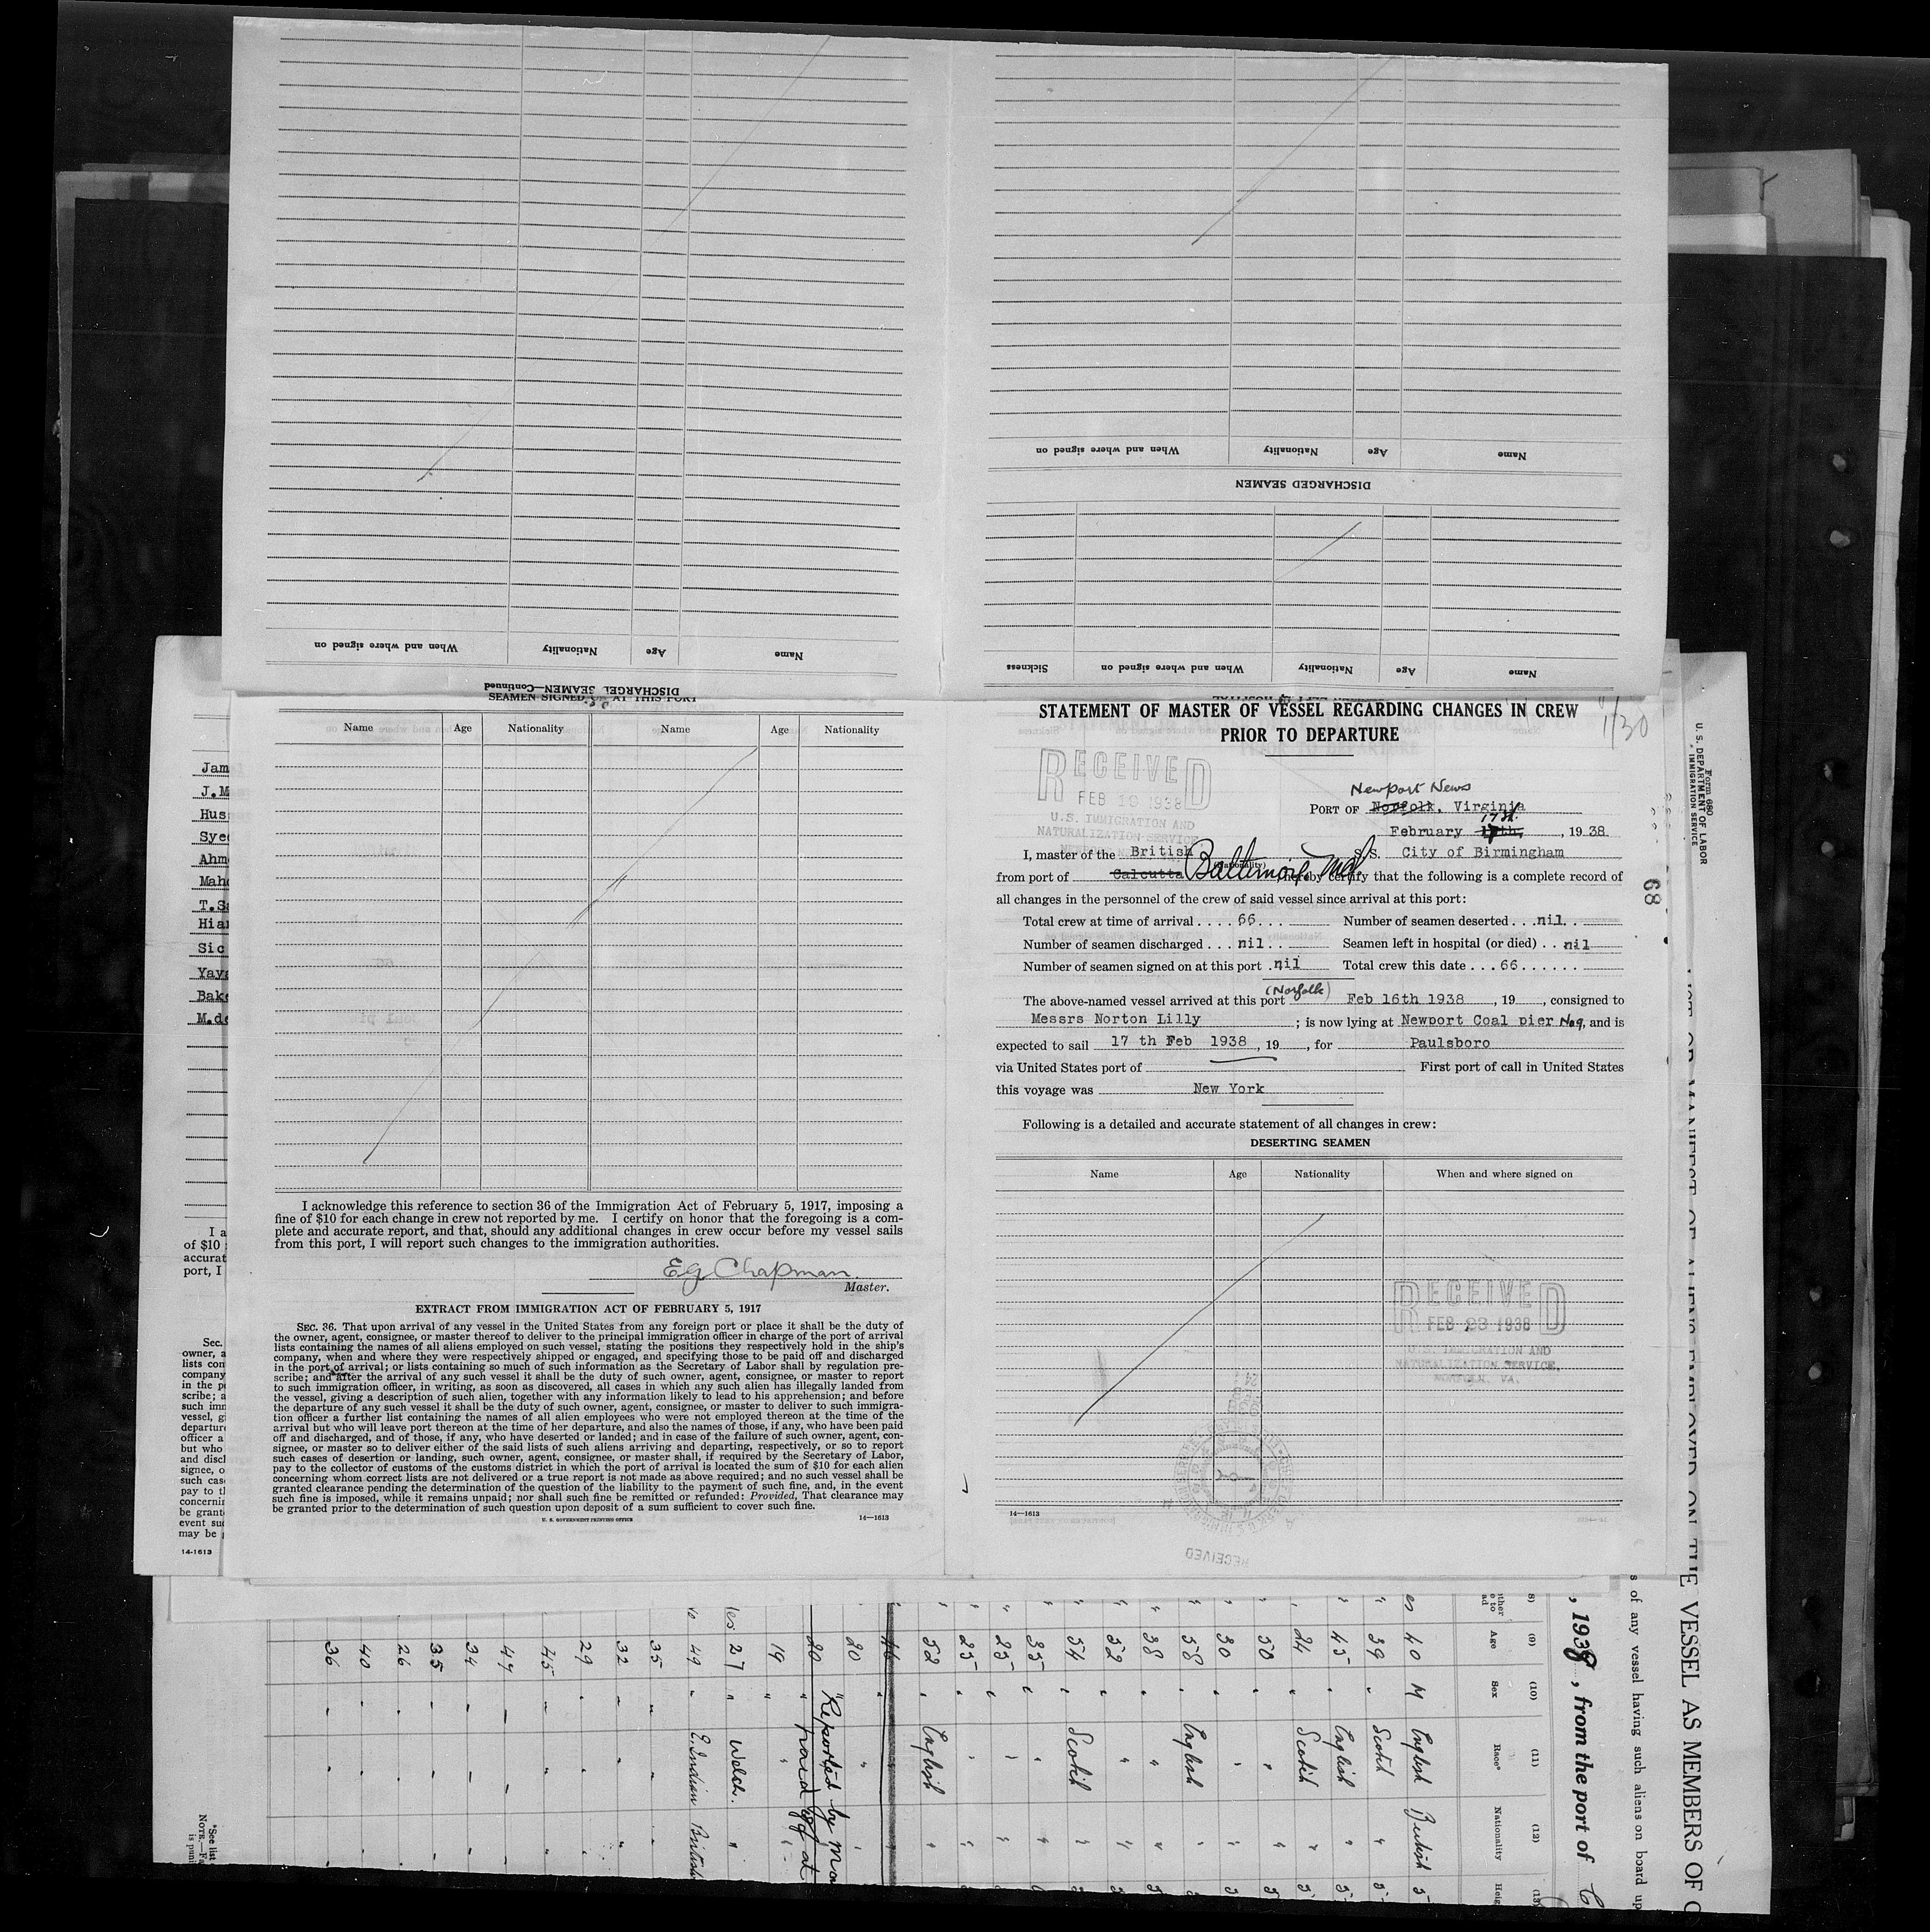 When and where signed on Nationality Age Name
DISCHARGED SEAMEN—Continued
Name Age Nationality When and where signed on
DISCHARGED SEAMEN
Name Age Nationality When and where signed on Sickness
SEAMEN SIGNED ON AT THIS PORT
Name Age Nationality Name Age Nationality
I acknowledge this reference to section 36 of the Immigration Act of February 5, 1917, imposing a
fine of $10 for each change in crew not reported by me. I certify on honor that the foregoing is a com-
plete and accurate report, and that, should any additional changes in crew occur before my vessel sails
from this port, I will report such changes to the immigration authorities.
EG Chapman
Master.
EXTRACT FROM IMMIGRATION ACT OF FEBRUARY 5, 1917
SEC. 36. That upon arrival of any vessel in the United States from any foreign port or place it shall be the duty of
the owner, agent, consignee, or master thereof to deliver to the principal immigration officer in charge of the port of arrival
lists containing the names of all aliens employed on such vessel, stating the positions they respectively hold in the ship's
company, when and where they were respectively shipped or engaged, and specifying those to be paid off and discharged
in the port of arrival; or lists containing so much of such information as the Secretary of Labor shall by regulation pre-
scribe; and after the arrival of any such vessel it shall be the duty of such owner, agent, consignee, or master to report
to such immigration officer, in writing, as soon as discovered, all cases in which any such alien has illegally landed from
the vessel, giving a description of such alien, together with any information likely to lead to his apprehension; and before
the departure of any such vessel it shall be the duty of such owner, agent, consignee, or master to deliver to such immigra-
tion officer a further list containing the names of all alien employees who were not employed thereon at the time of the
arrival but who will leave port thereon at the time of her departure, and also the names of those, if any, who have been paid
off and discharged, and of those, if any, who have deserted or landed; and in case of the failure of such owner, agent, con-
signee, or master so to deliver either of the said lists of such aliens arriving and departing, respectively, or so to report
such cases of desertion or landing, such owner, agent, consignee, or master shall, if required by the Secretary of Labor,
pay to the collector of customs of the customs district in which the port of arrival is located the sum of $10 for each alien
concerning whom correct lists are not delivered or a true report is not made as above required; and no such vessel shall be
granted clearance pending the determination of the question of the liability to the payment of such fine, and, in the event
such fine is imposed, while it remains unpaid; nor shall such fine be remitted or refunded: Provided, That clearance may
be granted prior to the determination of such question upon deposit of a sum sufficient to cover such fine.
U. S. GOVERNMENT PRINTING OFFICE 14—1613
STATEMENT OF MASTER OF VESSEL REGARDING CHANGES IN CREW
PRIOR TO DEPARTURE
1/30
RECEIVED
FEB 19 1938
U.S. IMMIGRATION AND
NATURALIZATION SERVICE
Newport News
PORT OF Norfolk, Virginia
February 17th, 1938
I, master of the British S.S. City of Birmingham
(Nationality)
from port of Calcutta Baltimore Md hereby certify that the following is a complete record of
all changes in the personnel of the crew of said vessel since arrival at this port:
Total crew at time of arrival 66 Number of seamen deserted nil
Number of seamen discharged nil Seamen left in hospital (or died) nil
Number of seamen signed on at this port nil Total crew this date 66
(Norfolk)
The above-named vessel arrived at this port Feb 16th 1938, 19 , consigned to
Messrs Norton Lilly ; is now lying at Newport Coal pier No 9, and is
expected to sail 17 th Feb 1938, 19 , for Paulsboro
via United States port of First port of call in United States
this voyage was New York
Following is a detailed and accurate statement of all changes in crew:
DESERTING SEAMEN
Name Age Nationality When and where signed on
RECEIVED
FEB 23 1938
U.S. IMMIGRATION AND
NATURALIZATION SERVICE,
NORFOLK, VA.
RECEIVED
14—1613
68
Jam
J.M
Hus
Sye
Ahm
Mah
T.S
Hia
Sic
Yay
Bak
M.d
I a
of $10
accurat
port, I
Sec.
owner, a
lists con
company
in the p
scribe; a
such imm
vessel, g
departure
officer a
but who
and disc
signee, o
such cas
pay to t
concerni
be grant
event su
may be
14-1613
Form 680
U. S. DEPARTMENT OF LABOR
IMMIGRATION SERVICE
LIST OR MANIFEST OF ALIENS EMPLOYED ON THE VESSEL AS MEMBERS OF C
s of any vessel having such aliens on board up
, 1938, from the port of C
(8) (9) (10) (11) (12) (13)
Age Sex Race* Nationality Heig
40 M English British 5
39 " Scotch " 5
45 " English " 5
24 " Scotch " 5
50 " " " 5
30 " " " 5
58 " English " 5
38 " " " 5
52 " " " 5
54 " Scotch " 5
35 " " "
25 " " "
25 " " "
52 " English "
20 " "
Reported by Ma
20 " paid off at
19 " "
27 " Welch. "
49 " E. Indian British
35 " "
32 " "
29 " "
45 " "
47 " "
34 " "
35 " "
26 " "
40 " "
36 " "
*See list
NOTE.—Fa
is puni